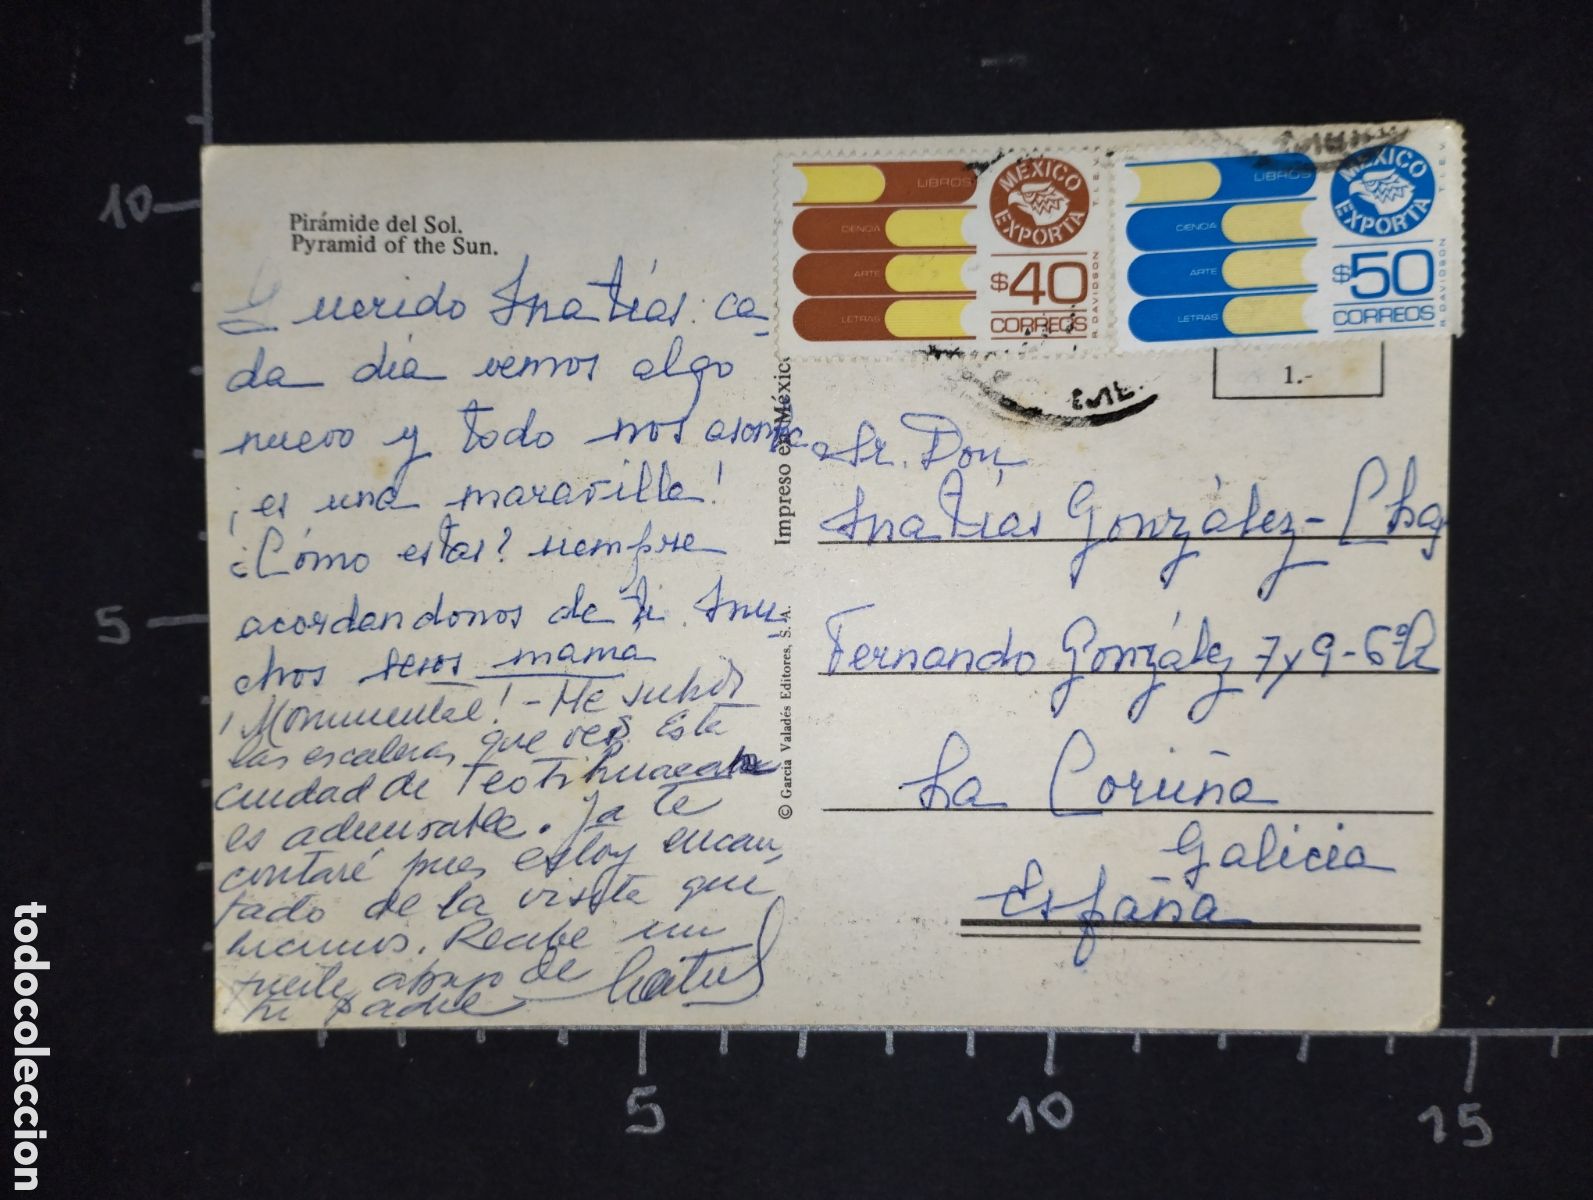 Pirámide del Sol.
Pyramid of the Sun.
Querido Matías: ca-
da dia vemos algo
nuevo y todo nos asombra
¡es una maravilla!
¿Cómo estas? siempre
acordandonos de ti. mu-
chos besos mamá
¡Monumental! - He subido
las escaleras que ves. Esta
ciudad de Teotihuacan
es admirable. Ya te
contaré pues estoy encan-
tado de la visita que
hicimos. Recibe un
fuerte abrazo de
tu padre
Impreso en México
© García Valadés Editores, S. A.
LIBROS
CIENCIA
ARTE
LETRAS
MEXICO EXPORTA
$40
CORREOS
T.I.E.V.
R. DAVIDSON
LIBROS
CIENCIA
ARTE
LETRAS
MEXICO EXPORTA
$50
CORREOS
T.I.E.V.
R. DAVIDSON
1.-
Sr. Don
Matías González-Chas
Fernando González 7 y 9-6º
La Coruña
Galicia
España
10
5
5
10
15
todocoleccion